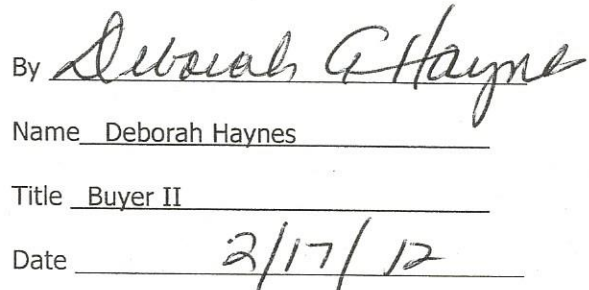 By Deborah A Haynes
Name Deborah Haynes
Title Buyer II
Date 2/17/12